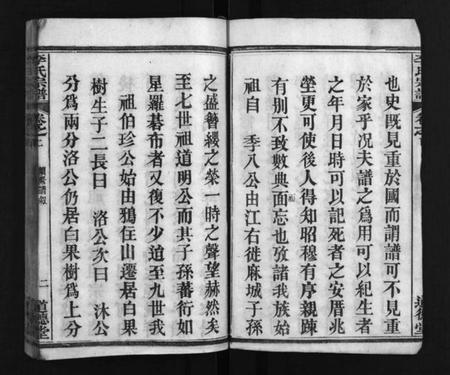 也史既見重於國而謂譜可不見重
於家乎況夫譜之爲用可以紀生者
之年月日時可以記死者之安厝兆
塋更可使後人得知昭穆有序親踈
有別不致數典面忘也攷諸我族始
祖自 季八公由江右徙麻城子孫
之盛簪纓之榮一時之聲望赫然矣
至七世祖道明公而其子孫蕃衍如
星羅碁布者又復不少迨至九世我
祖伯珍公始由鴉住山遷居白果
樹生子二長曰 洛公次曰 沐公
分爲兩分洛公仍居白果樹爲上分
李氏宗譜
卷之
二
道德堂